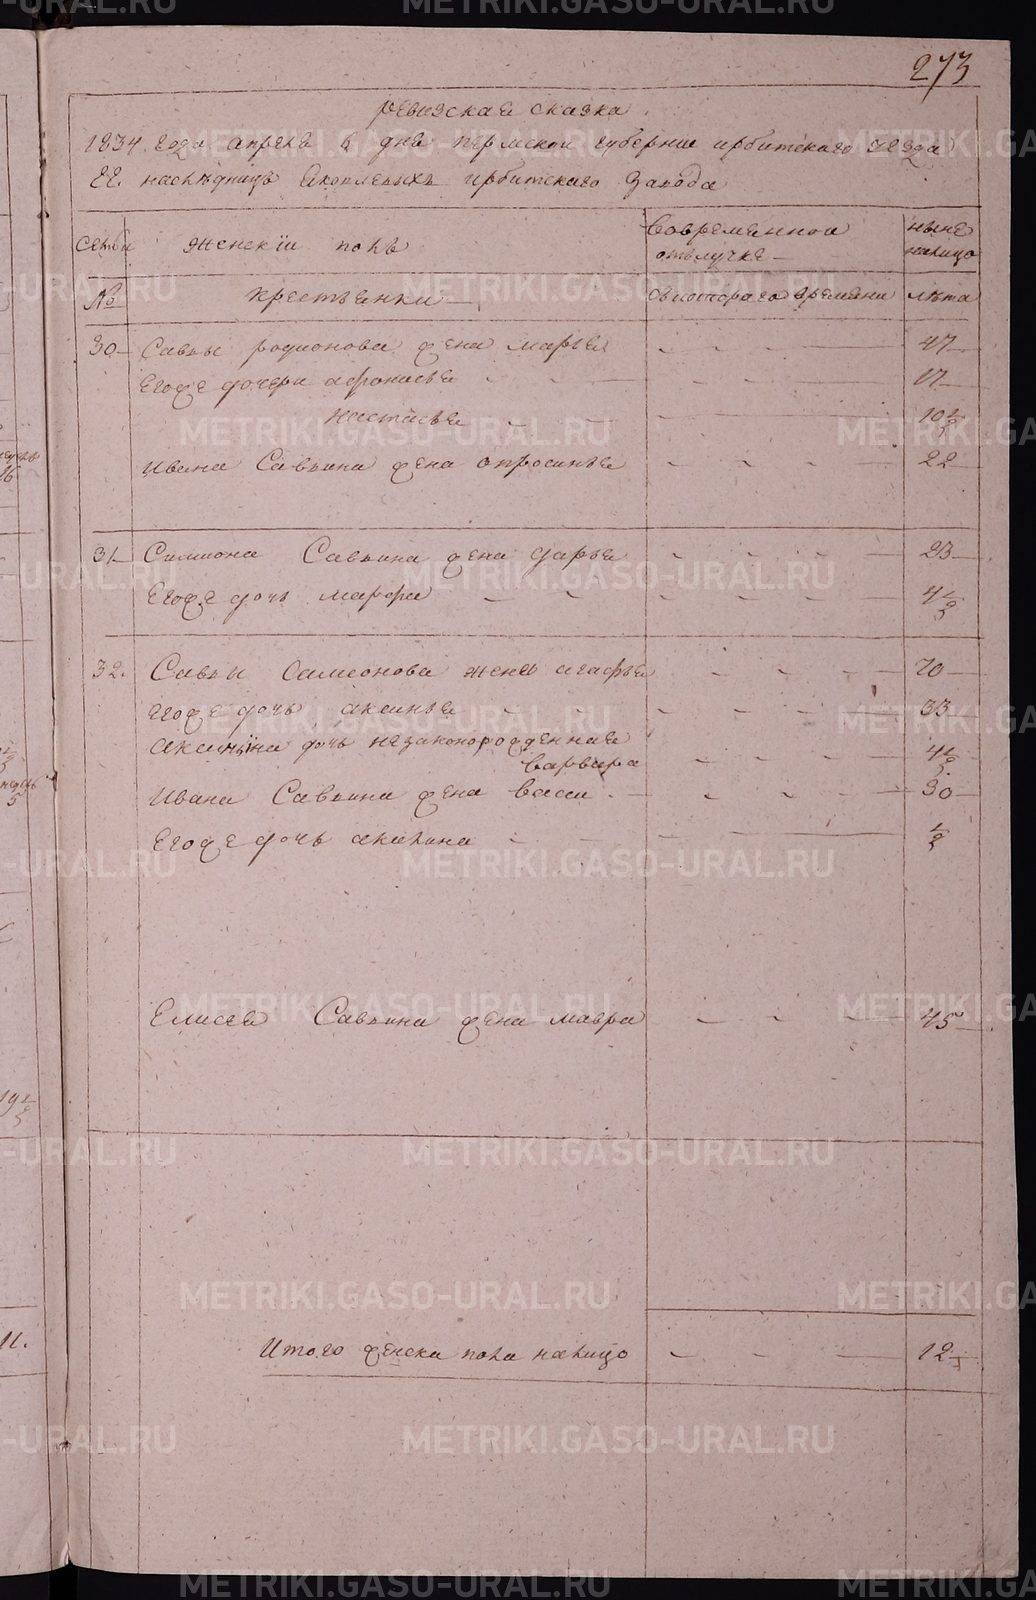 273
ревизская сказка
1834 года апреля дня пермской губернии ирбитского уезда
ГГ. наследниц яковлевых ирбитского завода
семьи женскiй полъ вовременной отълучке ныне налицо
№ крестьянки скотораго времяни лета
30 Савы родионова жена марья 47
Егоже дочери афонасья 17
настасья 10½
ивана Савина жена опросинья 22
31 Симиона Савина жена дарья 23
Егоже дочь марфа 4½
32. Савы Самсонова жена агафья 70
Егоже дочь аксинья 33
аксиньина дочь незаконорожденная
варвара 4½
Ивана Савина жена васса 30
Егоже дочь акилина ½
Елисея Савина жена мавра 45
Итого женска пола налицо 12
11.
METRIKI.GASO-URAL.RU